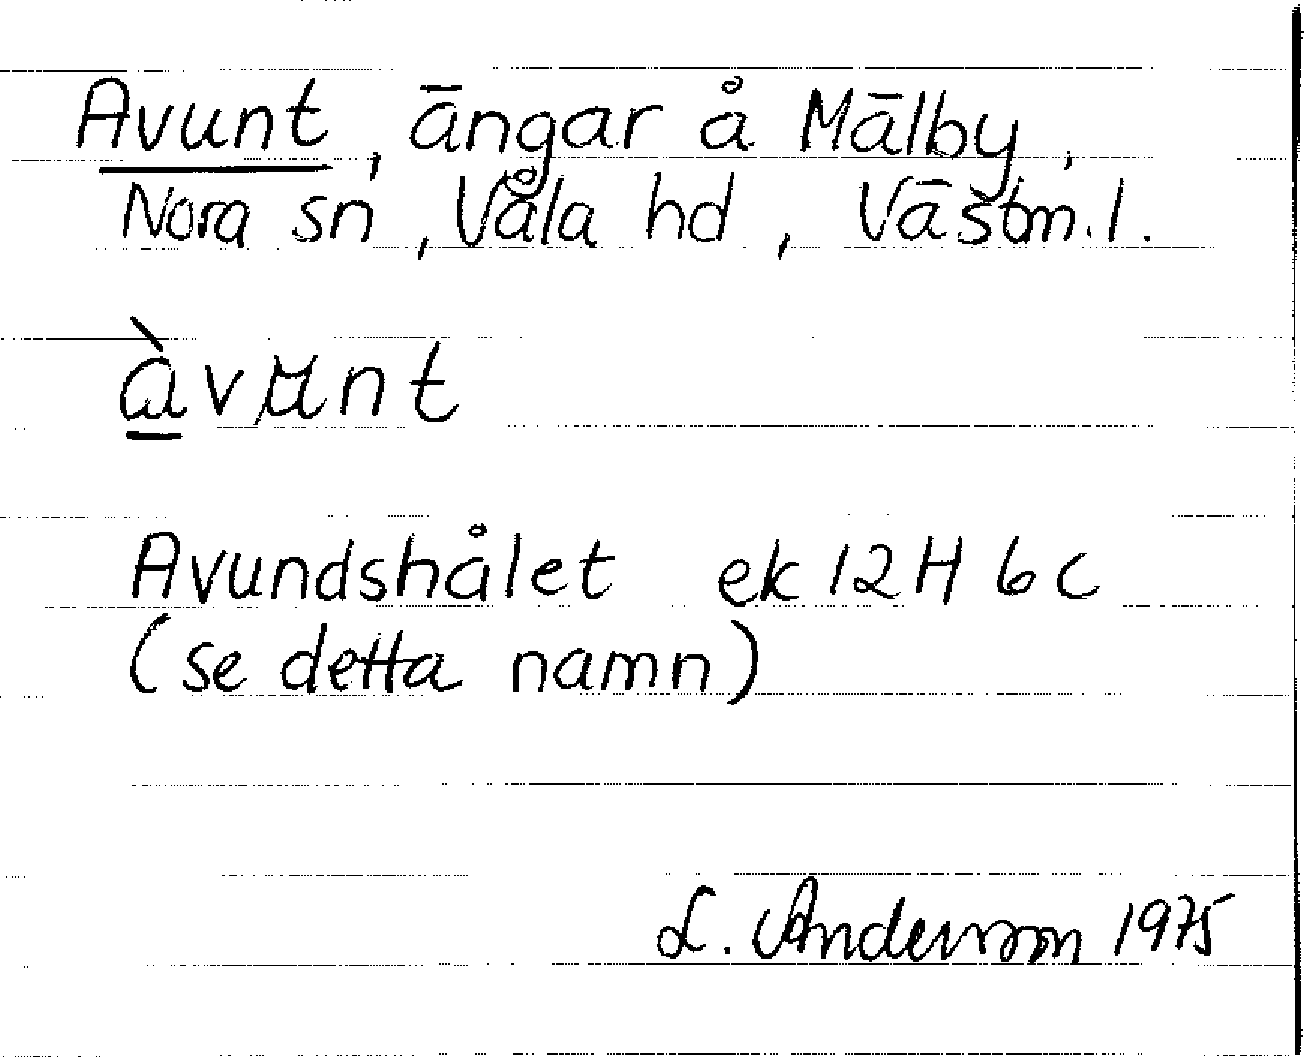 Avunt, ängar å Mälby,
Nora sn, Våla hd, Västm.l.
àvµnt
Avundshålet ek 12H 6c
(se detta namn)
L. Andersson 1975